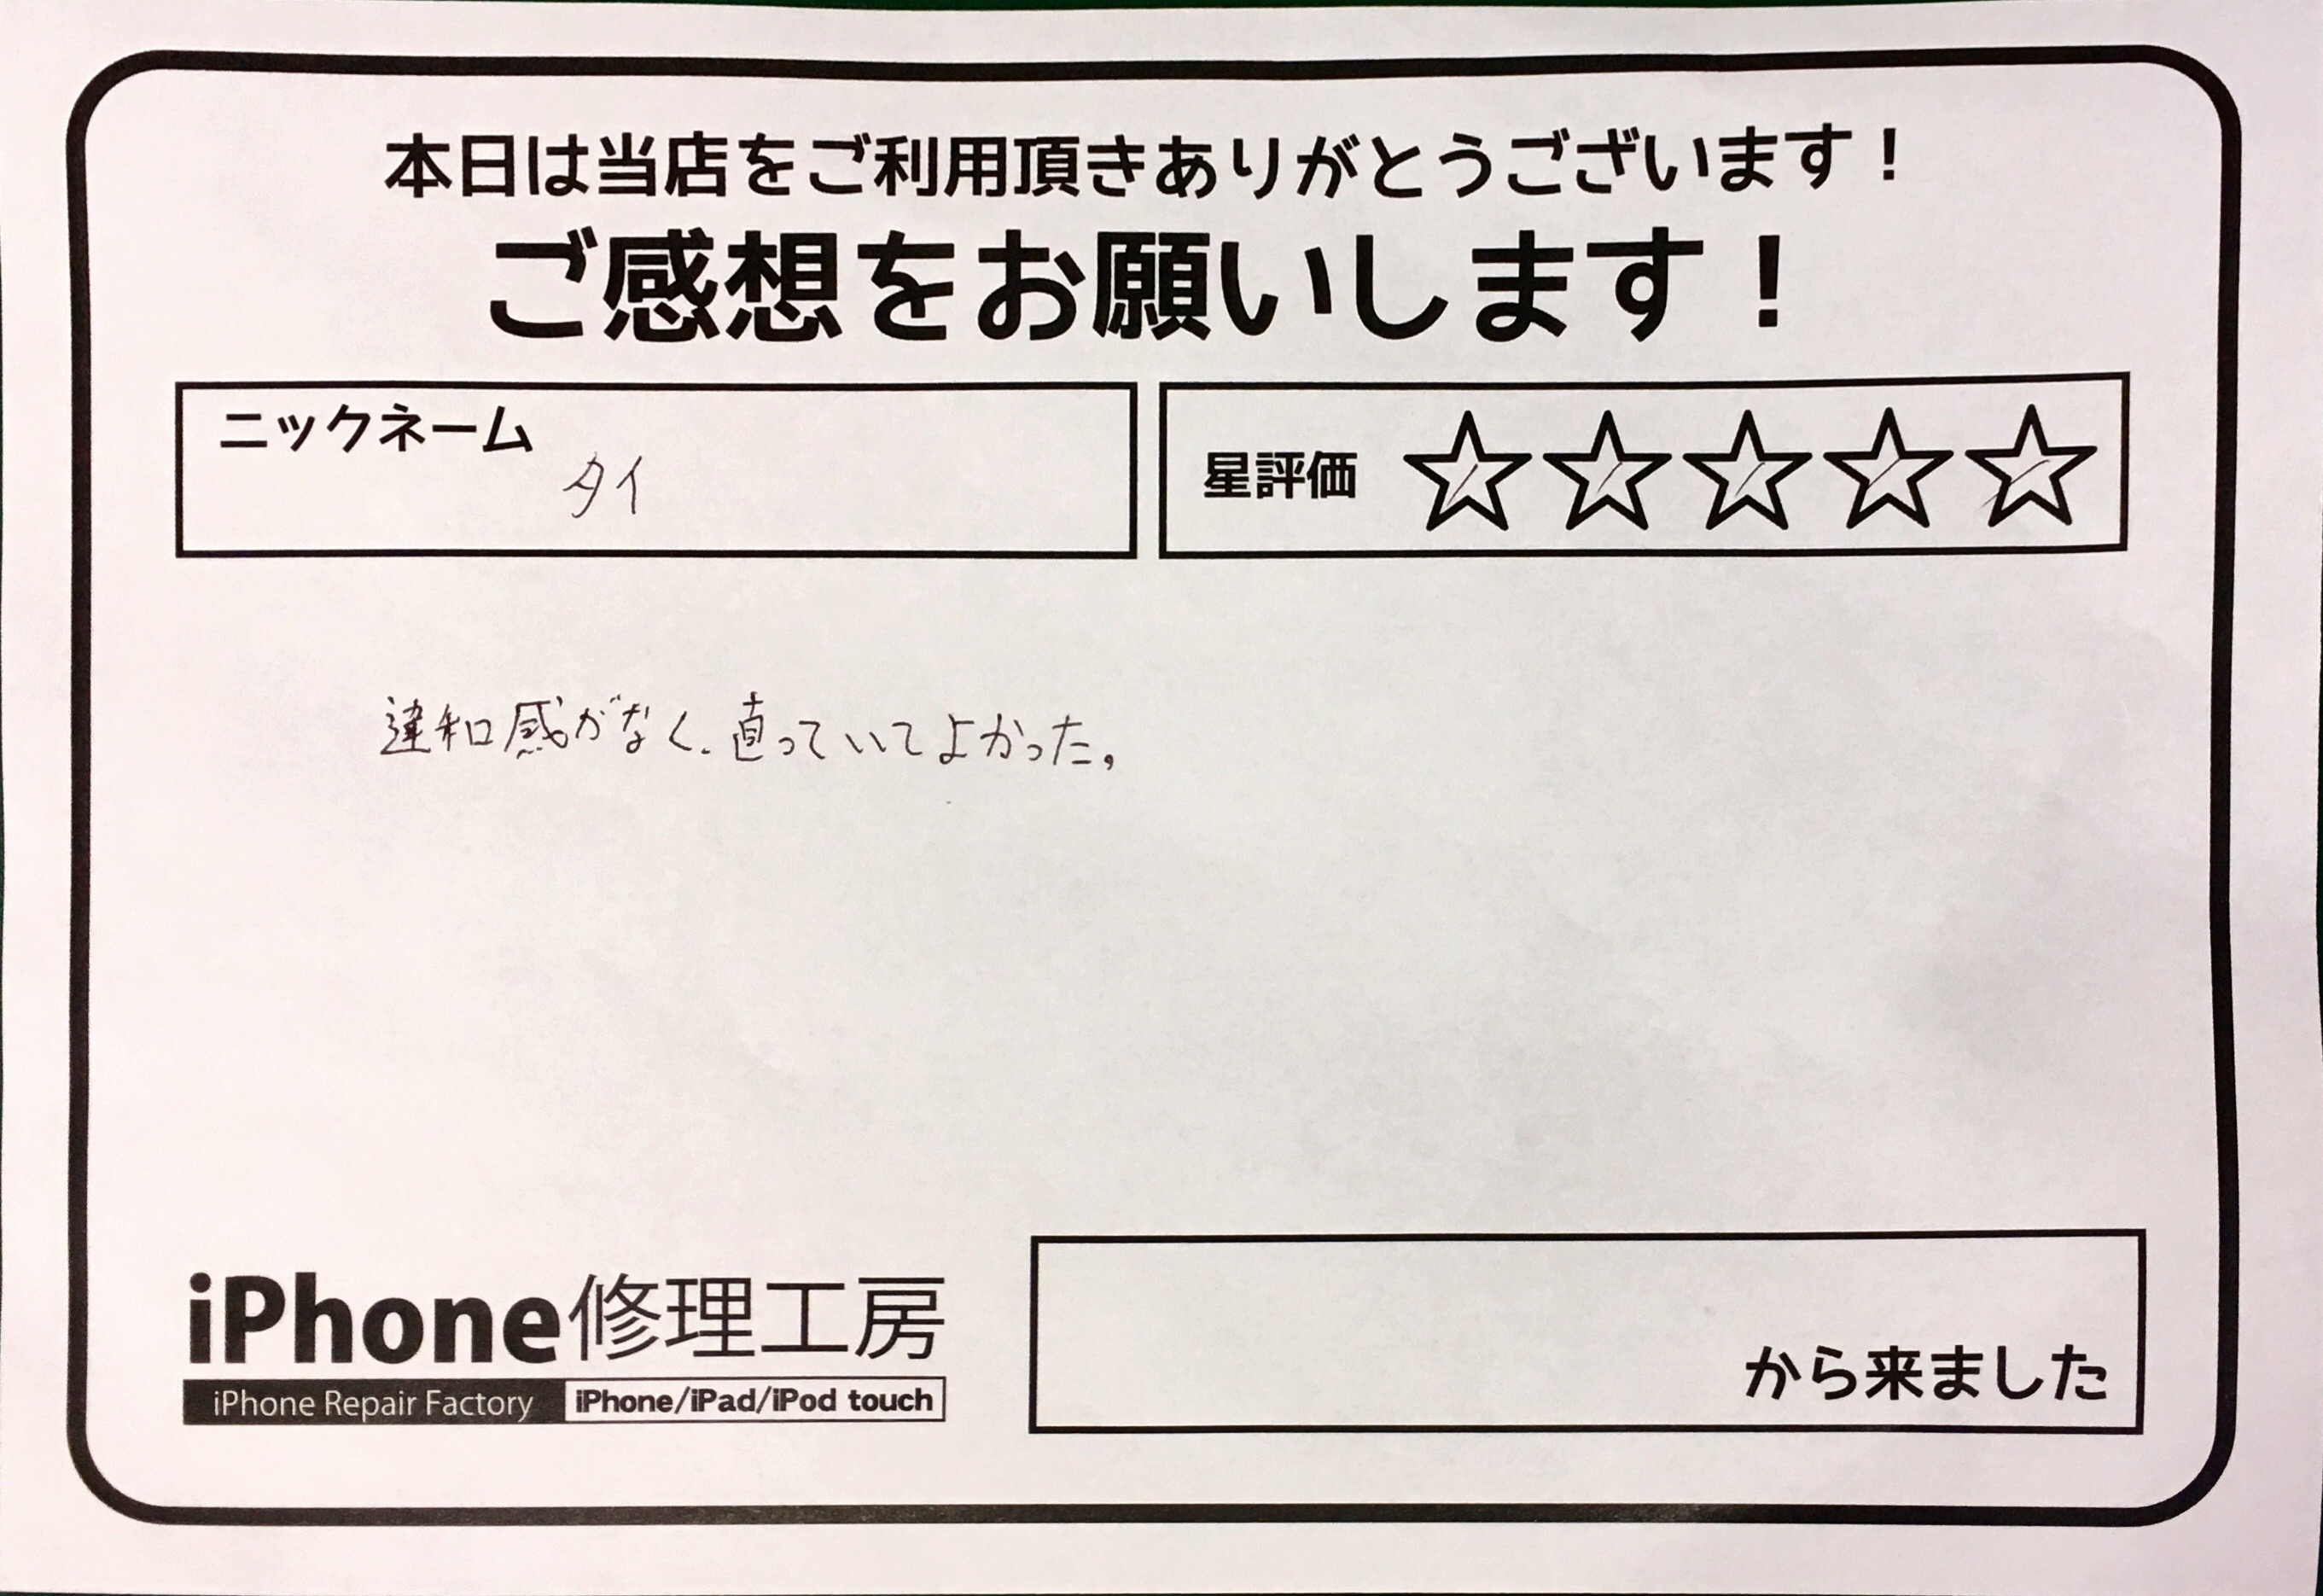 本日は当店をご利用頂きありがとうございます！
ご感想をお願いします！
ニックネーム
タイ
星評価 ☆☆☆☆☆
違和感がなく、直っていてよかった。
iPhone修理工房
iPhone Repair Factory iPhone/iPad/iPod touch
から来ました